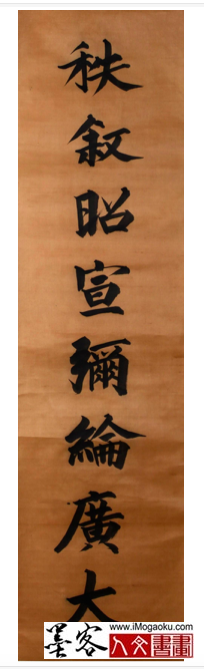 秩叙昭宣彌綸廣大
www.iMogaoku.com
墨客人文書畫